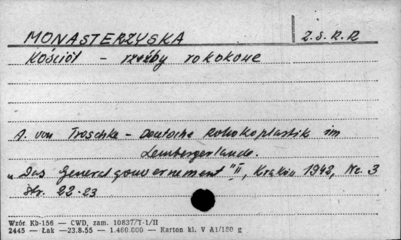 MONASTERZYSKA
2.S.R.R
Kościół - rzeźby rokokowe
A. von Troschke - Deutsche Rokokoplastik im
Lembergerlande.
"Das Generalgouvernement" II, Kraków 1942, Nr. 3
Str. 22-23
Wzór Kb-156 — CWD, zam. 10837/T-1/II
2445 — Łak —23.8.55 — 1.460.000 — Karton kl. V A1/180 g